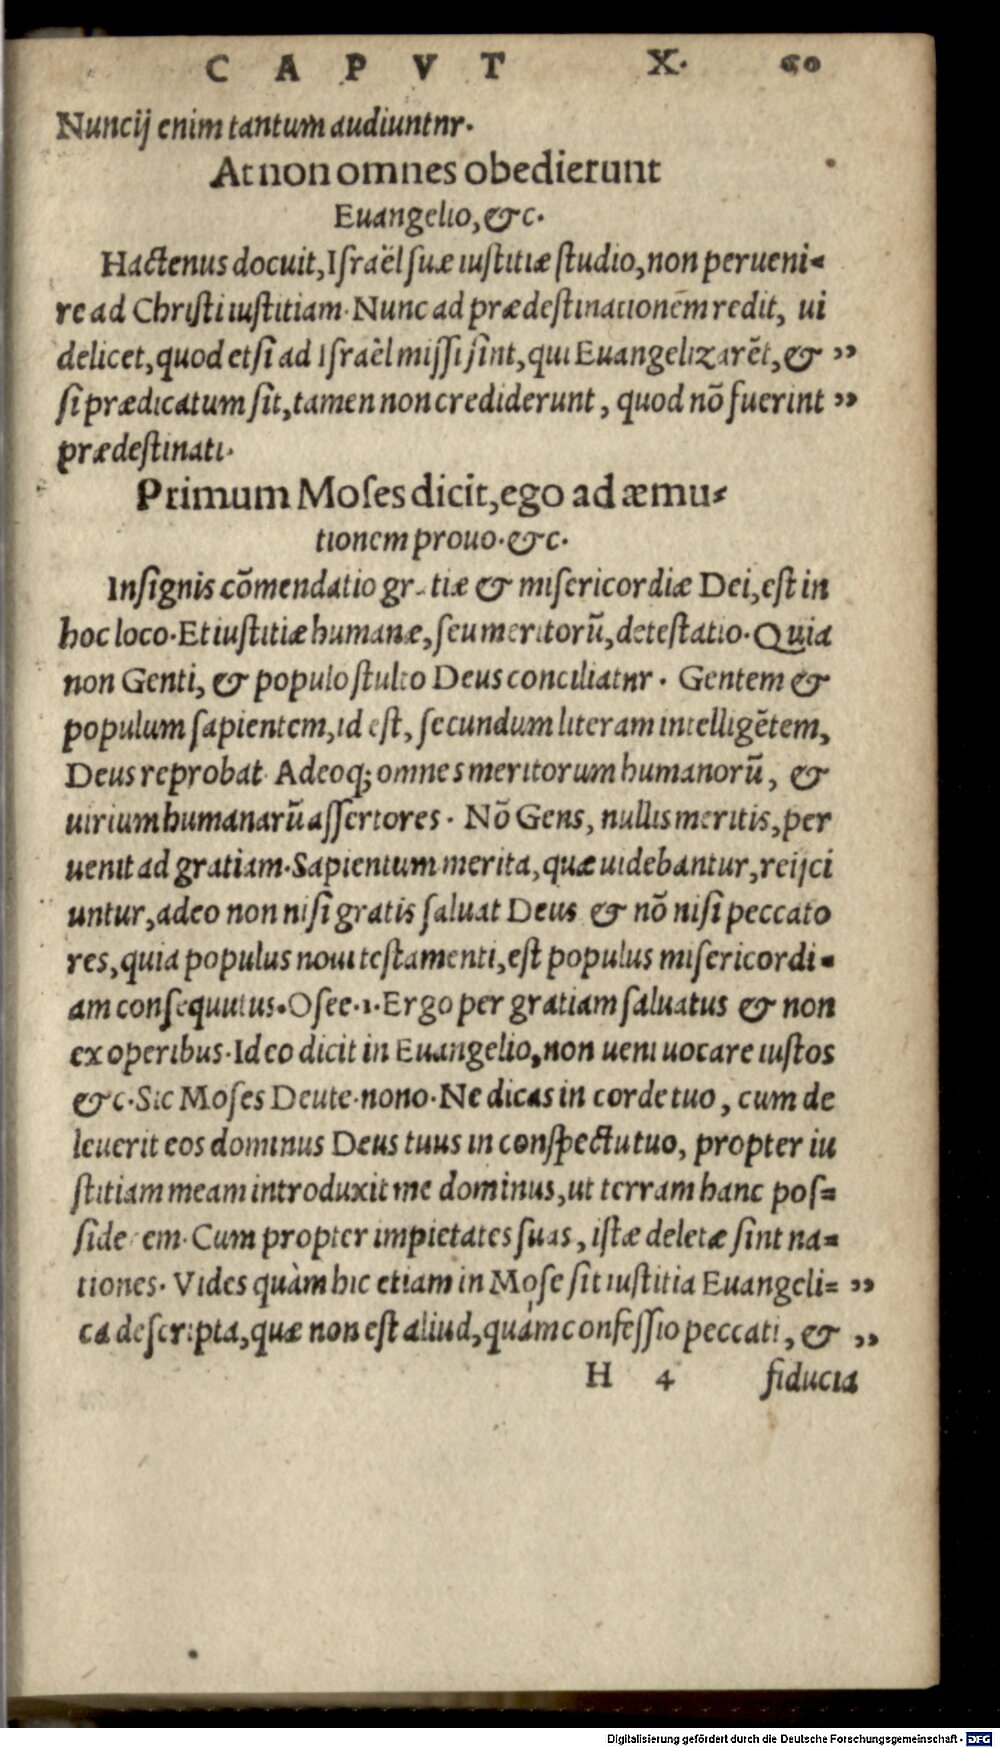 CAPVT X. 60
Nuncij enim tantum audiuntnr.
At non omnes obedierunt
Euangelio, &c.
Hactenus docuit, Israël suæ iustitiæ studio, non perueni-
re ad Christi iustitiam. Nunc ad prædestinationem redit, ui
delicet, quod etsi ad Israël missi sint, qui Euangelizarēt, & ”
si prædicatum sit, tamen non crediderunt, quod nō fuerint ”
prædestinati.
Primum Moses dicit, ego ad æmu-
tionem prouo. &c.
Insignis cōmendatio gr tiæ & misericordiæ Dei, est in
hoc loco. Et iustitiæ humanæ, seu meritorū, detestatio. Quia
non Genti, & populo stulto Deus conciliatnr. Gentem &
populum sapientem, id est, secundum literam intelligētem,
Deus reprobat. Adeoq; omnes meritorum humanorū, &
uirium humanarū assertores. Nō Gens, nullis meritis, per
uenit ad gratiam. Sapientum merita, quæ uidebantur, reijci
untur, adeo non nisi gratis saluat Deus & nō nisi peccato
res, quia populus noui testamenti, est populus misericordi-
am consequutus. Osee. 1. Ergo per gratiam saluatus & non
ex operibus. Ideo dicit in Euangelio, non ueni uocare iustos
&c. Sic Moses Deute. nono. Ne dicas in corde tuo, cum de
leuerit eos dominus Deus tuus in conspectu tuo, propter iu
stitiam meam introduxit me dominus, ut terram hanc pos=
side em. Cum propter impietates suas, istæ deletæ sint na=
tiones. Vides quàm hic etiam in Mose sit iustitia Euangeli= ”
ca descripta, quæ non est aliud, quàm confessio peccati, & ”
H 4 fiducia
Digitalisierung gefördert durch die Deutsche Forschungsgemeinschaft - DFG